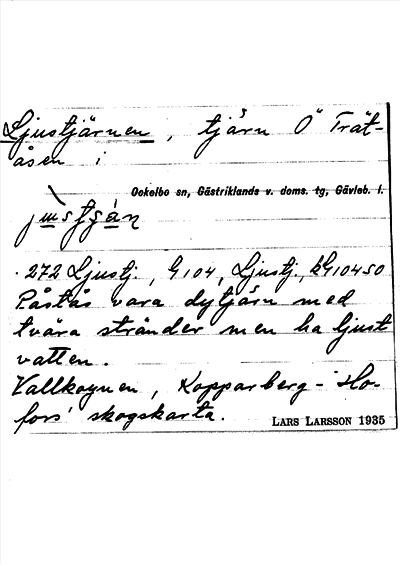 Ljustjärnen, tjärn Ö Trät-
åsen i
Ockelbo sn, Gästriklands v. doms. tg, Gävleb. l.
272 Ljustj., G104, Ljustj., kG10450
Påstås vara dytjärn med
tvära stränder men ha ljust
vatten.
Vallkoynen, Kopparberg-Ho-
fors' skogskarta.
LARS LARSSON 1935